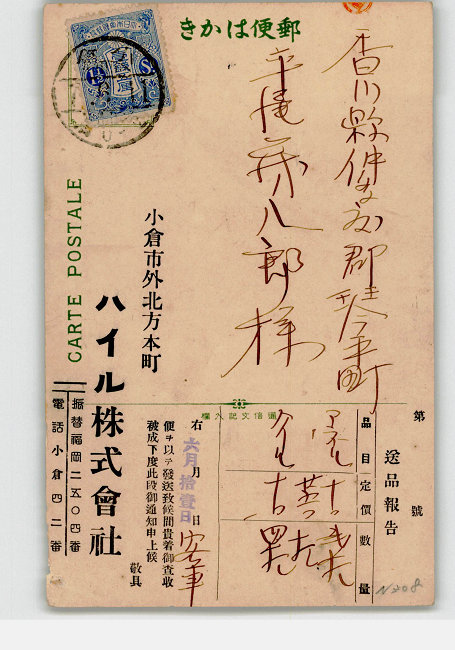 郵便はかき
香川縣仲多度郡琴平町
平尾森八郎様
CARTE POSTALE
小倉市外北方本町
ハイル株式會社
振替福岡二五〇四番
電話小倉四二番
通信文記入欄
第　號
送品報告
品目 定價 數量
右　月　日
六月拾壹日
便ヲ以テ發送致候間貴着御査收
被成下度此段御通知申上候
敬具
客車